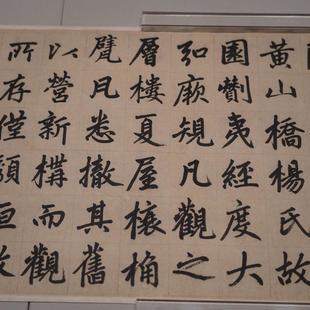 黃山橋楊氏故
園劗夷經度大
弘厥規凡觀之
層樓夏屋榱桷
甓凡悉撤其舊
以營新構而觀
所存僅垣